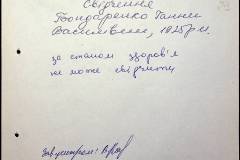 Свідчення
Бондаренко Ганни
Василівни, 1925 р.н.
за станом здоров'я
не може свідчити